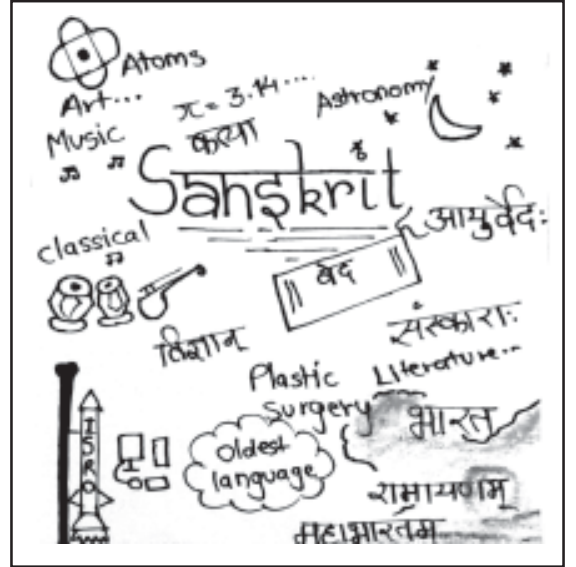 Atoms
Art...
π = 3.14....
Astronomy
Music
कथा
Sanskrit
आयुर्वेदः
classical
वेद
संस्काराः
विज्ञान
Plastic
Surgery
Literature...
भारत
ISRO
Oldest
language
रामायणम्
महाभारतम्